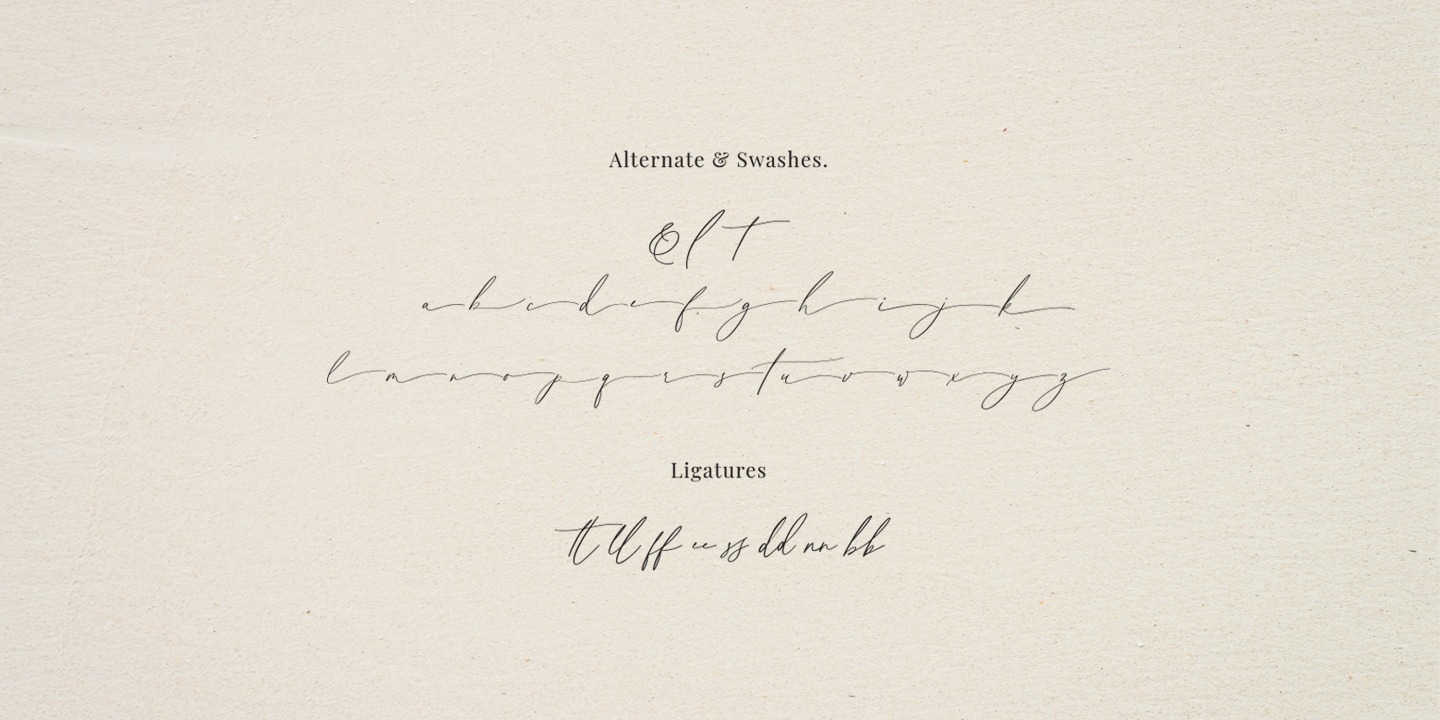 Alternate & Swashes.
& l t
a b c d e f g h i j k
l m n o p q r s t u v w x y z
Ligatures
tt ll ff ee ss dd nn bb